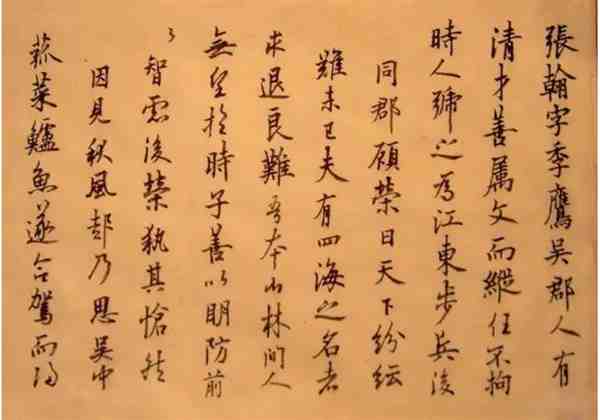 張翰字季鷹吳郡人有
清才善属文而縱任不拘
時人號之為江東步兵後
同郡顧榮曰天下紛紜
難未已夫有四海之名者
求退良難吾本山林間人
無望於時子善以明防前
以智慮後榮執其愴然
因見秋風起乃思吳中
菰菜鱸魚遂命駕而歸